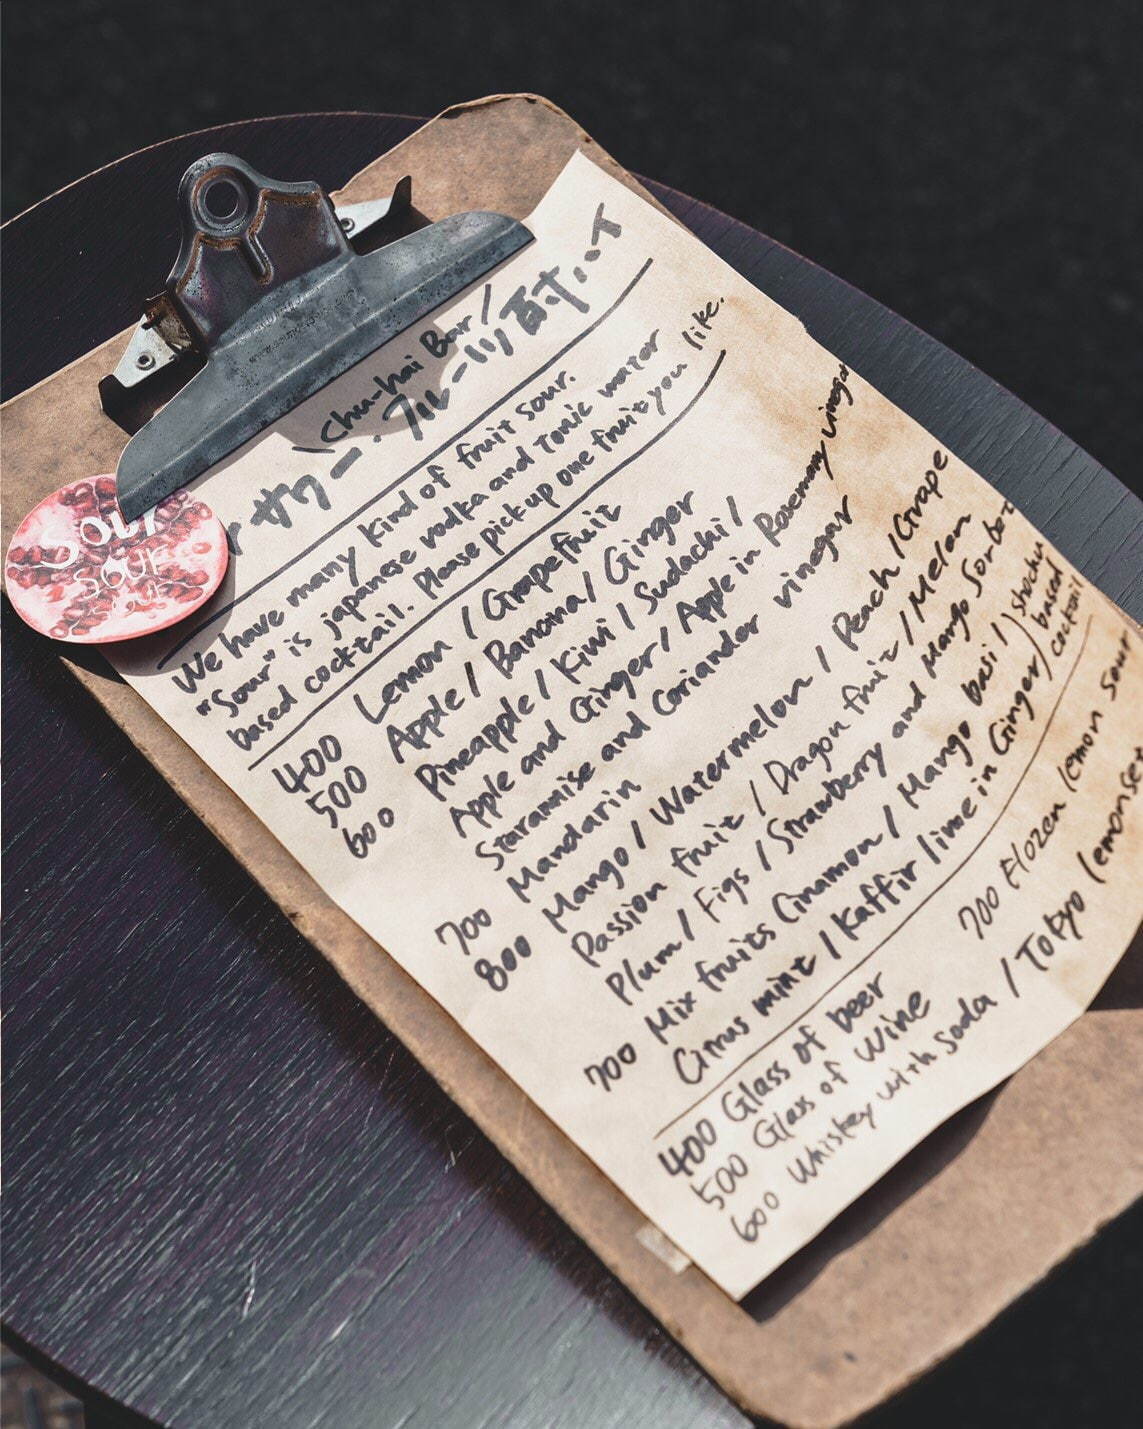 Sour
Sour
Sour
(chu-hai Bar/
サワー・フルーツ酎ハイ
We have many kind of fruit sour.
"Sour" is japanese vodka and Tonic water
based cocktail. Please pick up one fruit you like.
400 Lemon / Grapefruit
500 Apple / Banana / Ginger
600 Pineapple / Kiwi / Sudachi /
Apple and Ginger / Apple in Rosemary vinegar
Starannise and Coriander vinegar
700 Mandarin
800 Mango / Watermelon / Peach / Grape
Passion fruit / Dragon fruit / Melon
Plum / Figs / Strawberry and Mango Sorbet
700 Mix fruits Cinamon / Mango basil /
Citrus mint / Kaffir lime in Ginger
) shochu
based
cocktail
700 Flozen lemon sour
400 Glass of beer
500 Glass of Wine
600 Whiskey with Soda / Tokyo lemonser